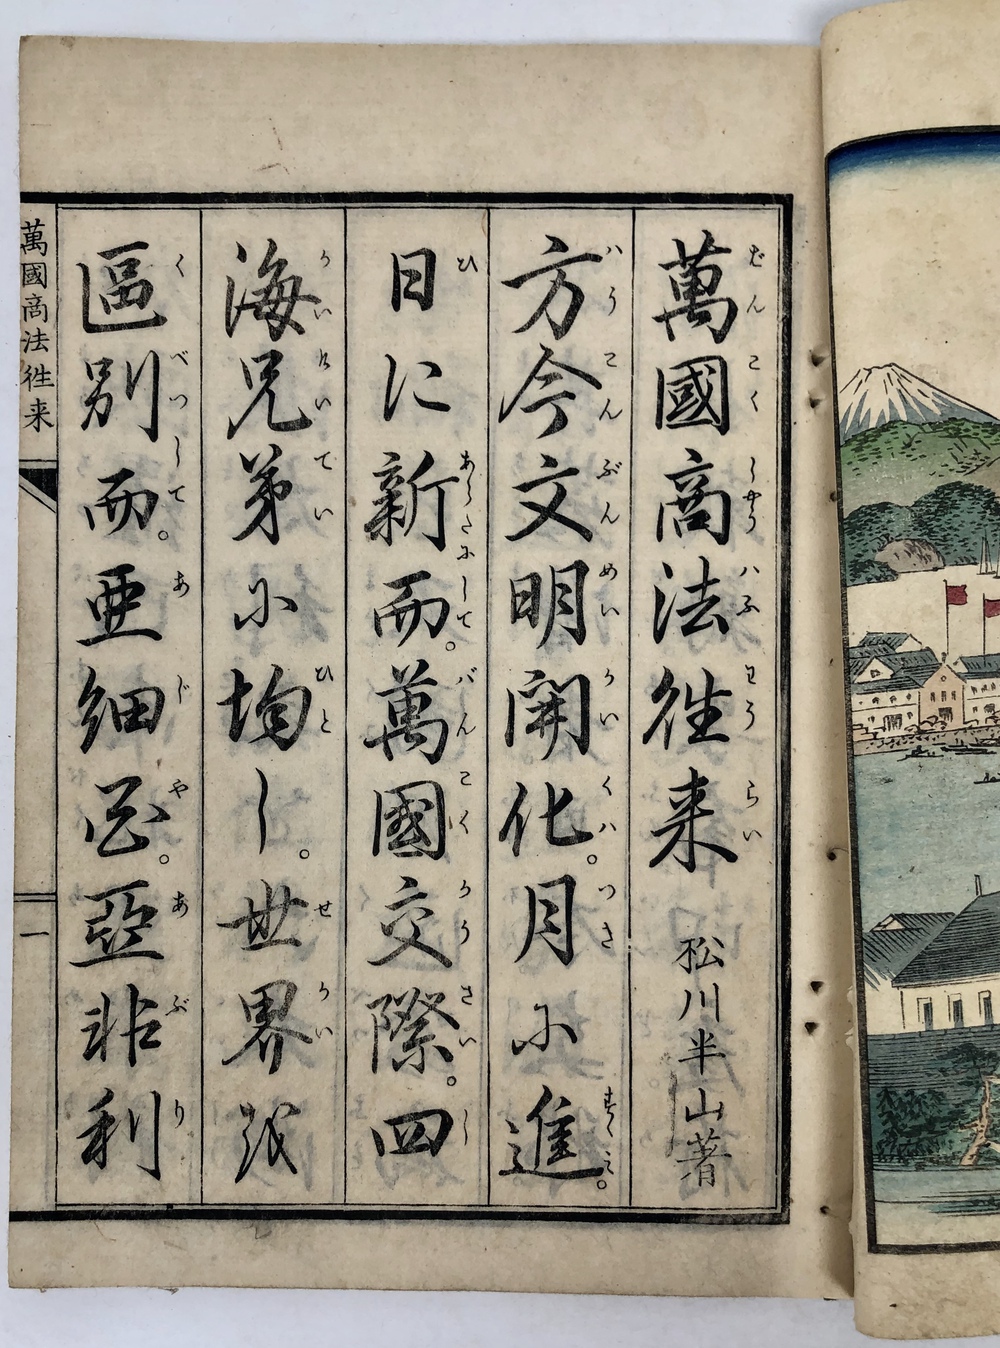 萬國商法徃来 松川半山著
方今文明開化。月に進
日に新而。萬國交際。四
海兄弟に均し。世界を
區別而。亜細亞。亞非利
萬國商法徃来
一